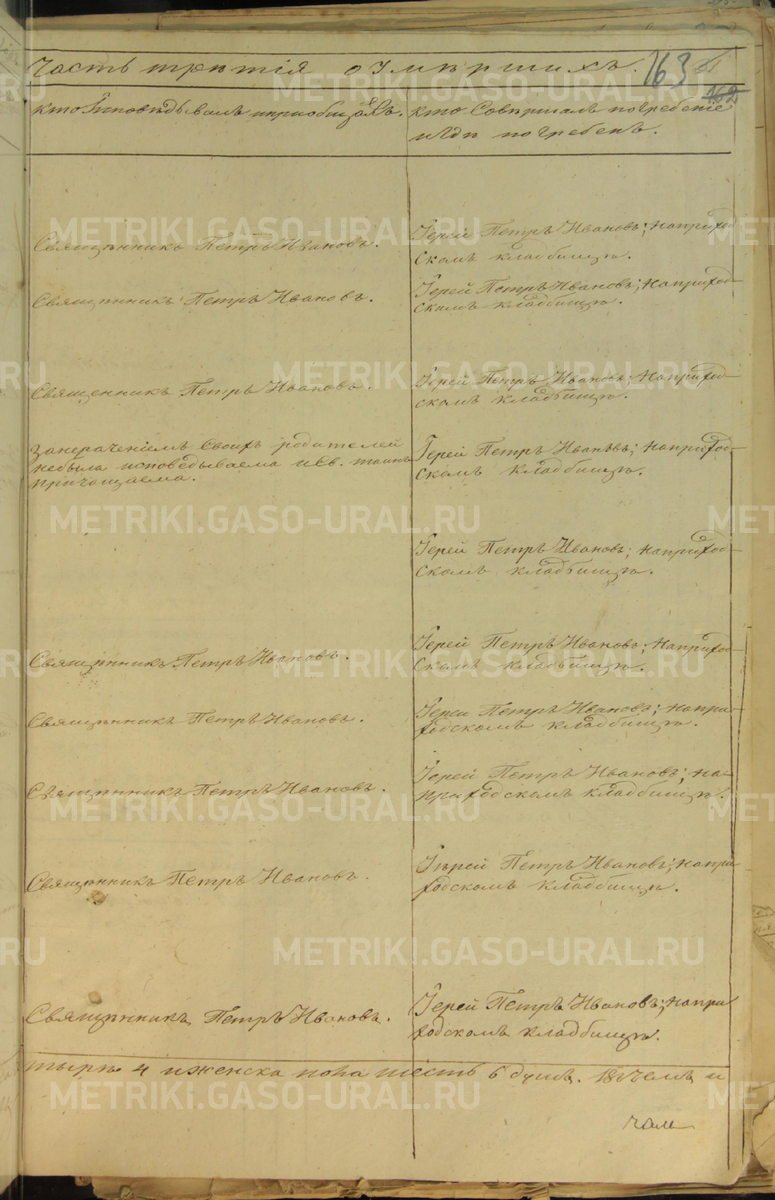 Часть третія о умершихъ. 163
162
Кто исповѣдывалъ и приобщалъ.
Кто совершалъ погребеніе
и гдѣ погребенъ.
Священникъ Петръ Ивановъ.
Іерей Петръ Ивановъ; на приход-
скомъ кладбищѣ.
Священникъ Петръ Ивановъ.
Іерей Петръ Ивановъ; на приход-
скомъ кладбищѣ.
Священникъ Петръ Ивановъ.
Іерей Петръ Ивановъ; на приход-
скомъ кладбищѣ.
своихъ родителей
небыла исповѣдываема и Св. таинъ
причащаема.
Іерей Петръ Ивановъ; на приход-
скомъ кладбищѣ.
Іерей Петръ Ивановъ; на приход-
скомъ кладбищѣ.
Священникъ Петръ Ивановъ.
Іерей Петръ Ивановъ. на приход-
скомъ кладбищѣ.
Священникъ Петръ Ивановъ.
Іерей Петръ Ивановъ; на при-
ходскомъ кладбищѣ.
Священникъ Петръ Ивановъ.
Іерей Петръ Ивановъ; на
приходскомъ кладбищѣ.
Священникъ Петръ Ивановъ.
Іерей Петръ Ивановъ; на при-
ходскомъ кладбищѣ.
Священникъ Петръ Ивановъ.
Іерей Петръ Ивановъ; на при
ходскомъ кладбищѣ.
тыре 4 и женска пола шесть 6 душъ.
METRIKI.GASO-URAL.RU